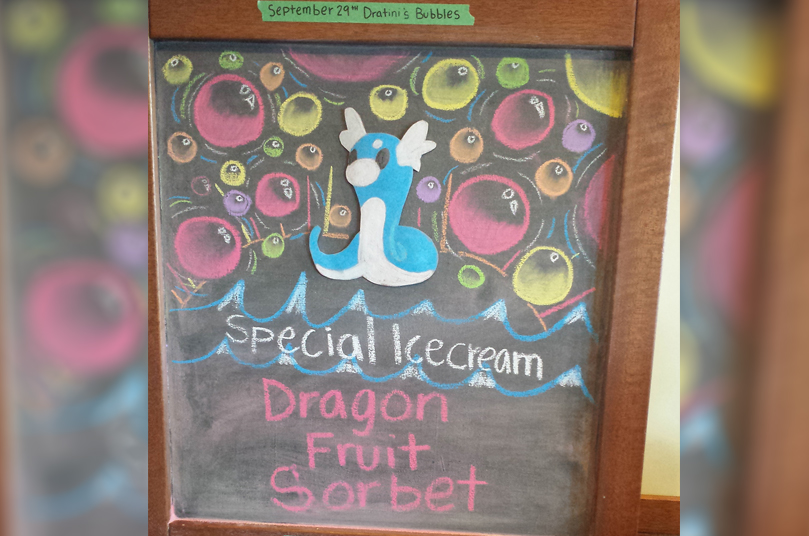 September 29TH Dratini's Bubbles
Special Icecream
Dragon
Fruit
Sorbet